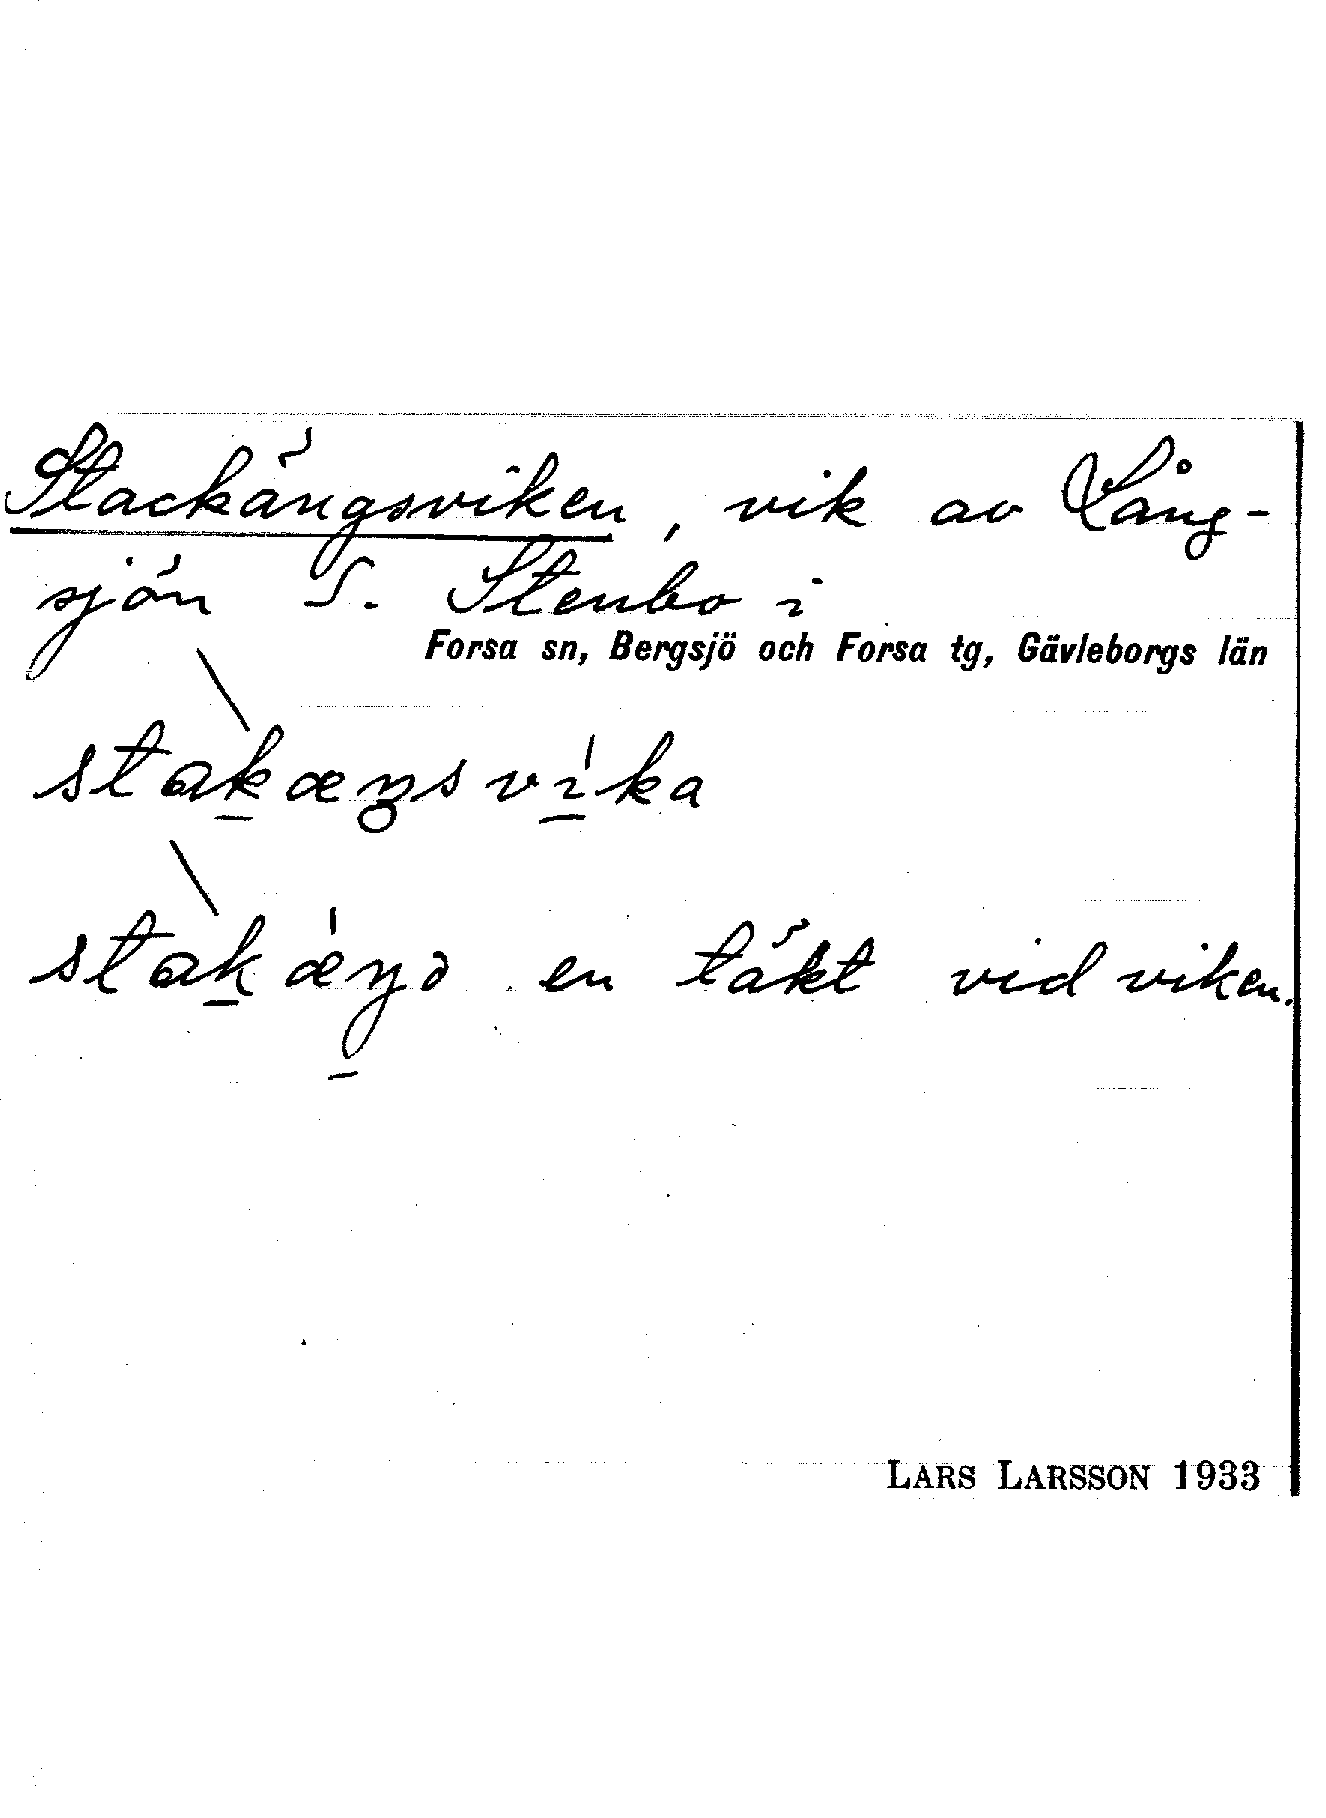 Stackängsviken, vik av Lång-
sjön S. Stenbo i
Forsa sn, Bergsjö och Forsa tg, Gävleborgs län
stakæŋsvi̍ka
stakæ̍ŋə en täkt vid viken.
LARS LARSSON 1933